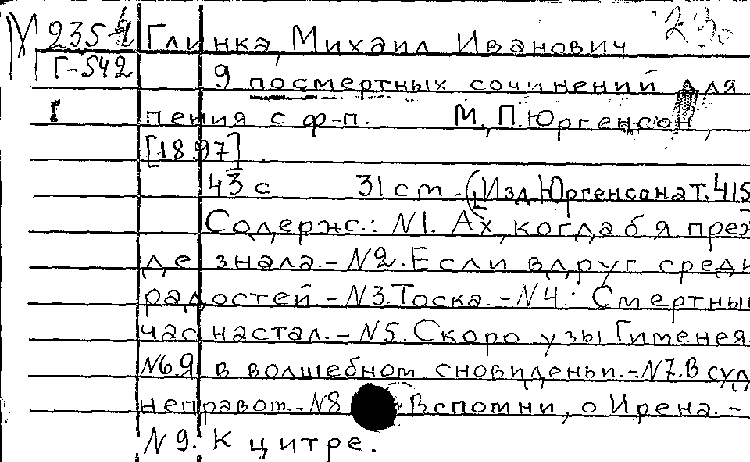 М 235-4 Глинка, Михаил Иванович 23.
Г-542 9 посмертных сочинений для
1 пения с ф-п. М, П. Юргенсон,
[1897].
43 с 31 см. (Изд. Юргенсона т. 415
Содерж.: N1. Ах, когда б я преж
де знала.-N2. Если вдруг среди
радостей-N3. Тоска.-N4: Смертный
час настал.-N5. Скоро узы Гименея.
N6. Я в волшебном сновиденьи.-N7. В суд
неправот.-N8 Вспомни, о Ирена.-
N9. К цитре.